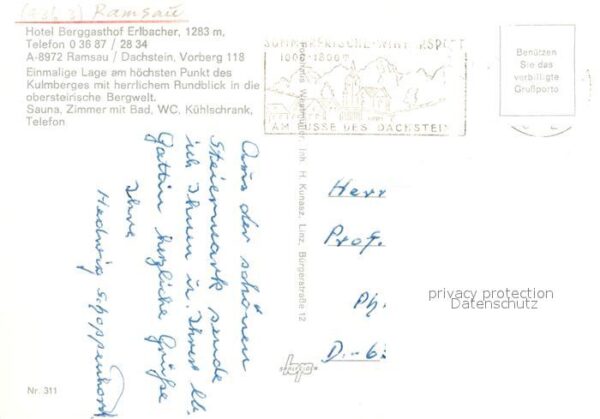 Ramsau
Hotel Berggasthof Erlbacher, 1283 m,
Telefon 0 36 87 / 28 34
A-8972 Ramsau / Dachstein, Vorberg 118
Einmalige Lage am höchsten Punkt des
Kulmberges mit herrlichem Rundblick in die
obersteirische Bergwelt.
Sauna, Zimmer mit Bad, WC, Kühlschrank,
Telefon
SOMMERFRISCHE-WINTERSPORT
AM FUSSE DES DACHSTEIN
Benützen
Sie das
verbilligte
Grußporto
Aus der schönen
Steiermark sende
ich Ihnen u. Ihrer lb.
Gattin herzliche Grüße
Ihre
Hedwig
Inh. H. Kunasz, Linz, Bürgerstraße 12
Herr
Prof.
Ph.
privacy protection
Datenschutz
Nr. 311